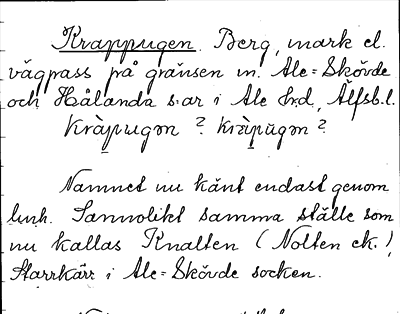 Krappugen. Berg, mark el.
vägpass på gränsen m. Ale-Skövde
och Hålanda s:ar i Ale hrd, Älfsb.l.
Kràpugən ? kràpūgən ?
Namnet nu känt endast genom
Sannolikt samma ställe som
nu kallas Knatten (Nolten ek.)
Starrkärr i Ale-Skövde socken.